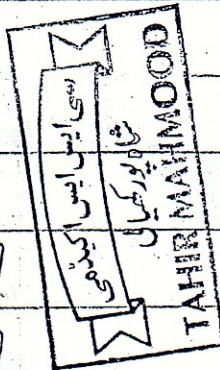 سی ایس ایس اکیڈمی
شاہ پور کیمپس
TAHIR MAHMOOD